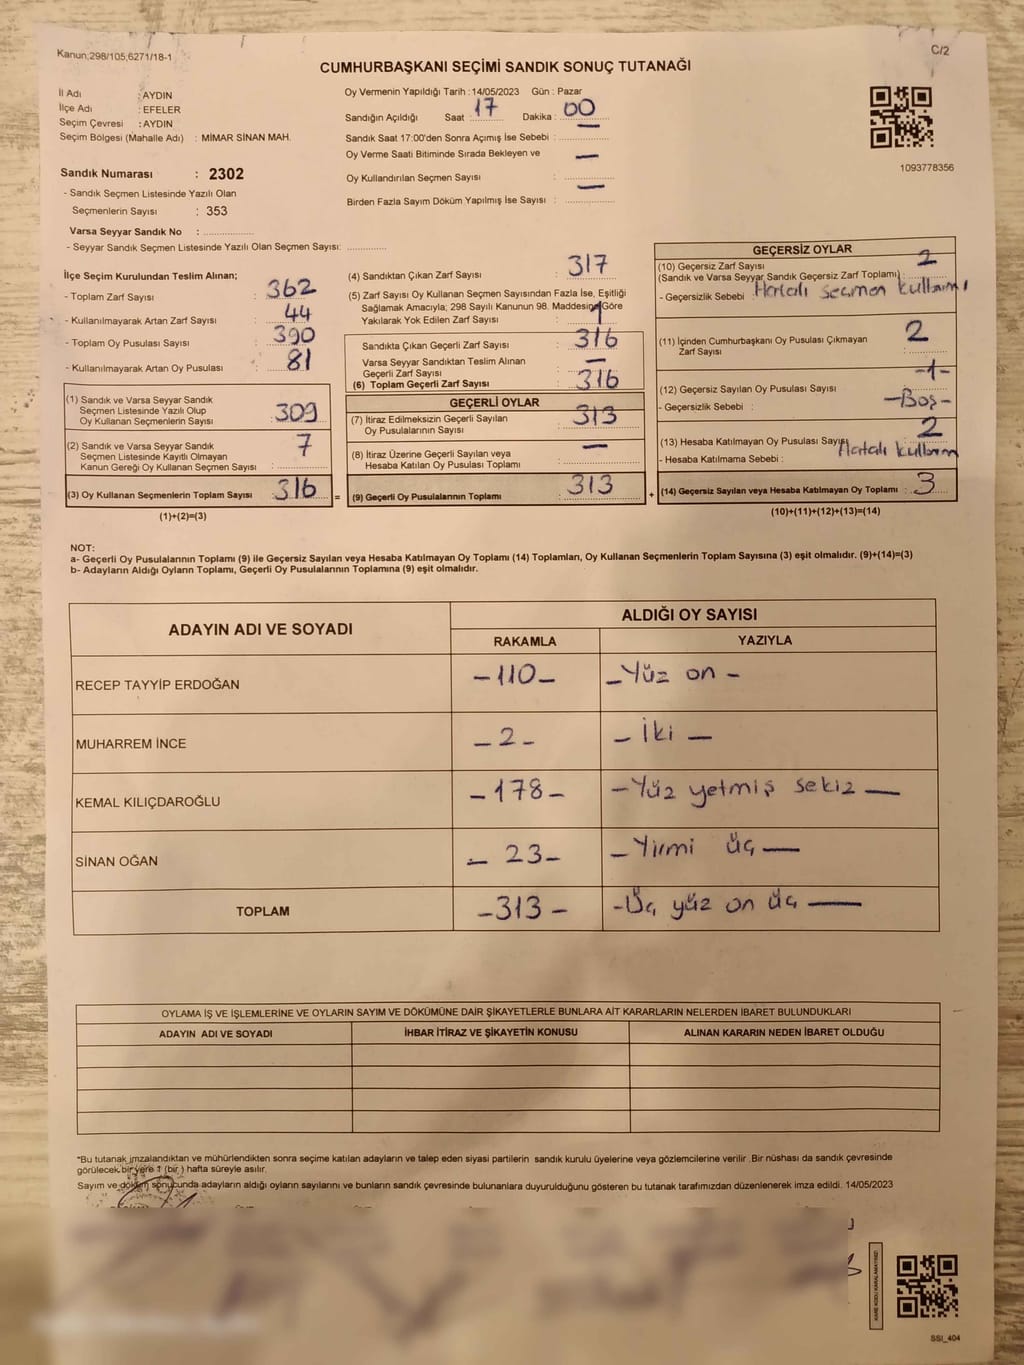 Kanun;298/105,6271/18-1
C/2
CUMHURBAŞKANI SEÇİMİ SANDIK SONUÇ TUTANAĞI
İl Adı : AYDIN
İlçe Adı : EFELER
Seçim Çevresi : AYDIN
Seçim Bölgesi (Mahalle Adı) : MİMAR SİNAN MAH.
Oy Vermenin Yapıldığı Tarih :14/05/2023 Gün : Pazar
Sandığın Açıldığı Saat : 17 Dakika : 00
Sandık Saat 17:00'den Sonra Açımış İse Sebebi : —
Oy Verme Saati Bitiminde Sırada Bekleyen ve
Oy Kullandırılan Seçmen Sayısı : —
Birden Fazla Sayım Döküm Yapılmış İse Sayısı : —
1093778356
Sandık Numarası : 2302
- Sandık Seçmen Listesinde Yazılı Olan
Seçmenlerin Sayısı : 353
Varsa Seyyar Sandık No :
- Seyyar Sandık Seçmen Listesinde Yazılı Olan Seçmen Sayısı:
İlçe Seçim Kurulundan Teslim Alınan;
- Toplam Zarf Sayısı : 362
- Kullanılmayarak Artan Zarf Sayısı : 44
- Toplam Oy Pusulası Sayısı : 390
- Kullanılmayarak Artan Oy Pusulası : 81
(1) Sandık ve Varsa Seyyar Sandık
Seçmen Listesinde Yazılı Olup
Oy Kullanan Seçmenlerin Sayısı : 309
(2) Sandık ve Varsa Seyyar Sandık
Seçmen Listesinde Kayıtlı Olmayan
Kanun Gereği Oy Kullanan Seçmen Sayısı : 7
(3) Oy Kullanan Seçmenlerin Toplam Sayısı : 316 =
(1)+(2)=(3)
(4) Sandıktan Çıkan Zarf Sayısı : 317
(5) Zarf Sayısı Oy Kullanan Seçmen Sayısından Fazla İse, Eşitliği
Sağlamak Amacıyla; 298 Sayılı Kanunun 98. Maddesine Göre
Yakılarak Yok Edilen Zarf Sayısı : 1
Sandıkta Çıkan Geçerli Zarf Sayısı : 316
Varsa Seyyar Sandıktan Teslim Alınan
Geçerli Zarf Sayısı : —
(6) Toplam Geçerli Zarf Sayısı : 316
GEÇERLİ OYLAR
(7) İtiraz Edilmeksizin Geçerli Sayılan
Oy Pusulalarının Sayısı : 313
(8) İtiraz Üzerine Geçerli Sayılan veya
Hesaba Katılan Oy Pusulası Toplamı : —
(9) Geçerli Oy Pusulalarının Toplamı : 313 +
GEÇERSİZ OYLAR
(10) Geçersiz Zarf Sayısı
(Sandık ve Varsa Seyyar Sandık Geçersiz Zarf Toplamı) : 2
- Geçersizlik Sebebi : Hatalı seçmen kullanımı
(11) İçinden Cumhurbaşkanı Oy Pusulası Çıkmayan
Zarf Sayısı : 2
(12) Geçersiz Sayılan Oy Pusulası Sayısı : -1-
- Geçersizlik Sebebi : -Boş-
(13) Hesaba Katılmayan Oy Pusulası Sayısı 2
- Hesaba Katılmama Sebebi : Hatalı kullanım
(14) Geçersiz Sayılan veya Hesaba Katılmayan Oy Toplamı : 3
(10)+(11)+(12)+(13)=(14)
NOT:
a- Geçerli Oy Pusulalarının Toplamı (9) ile Geçersiz Sayılan veya Hesaba Katılmayan Oy Toplamı (14) Toplamları, Oy Kullanan Seçmenlerin Toplam Sayısına (3) eşit olmalıdır. (9)+(14)=(3)
b- Adayların Aldığı Oyların Toplamı, Geçerli Oy Pusulalarının Toplamına (9) eşit olmalıdır.
ADAYIN ADI VE SOYADI
ALDIĞI OY SAYISI
RAKAMLA YAZIYLA
RECEP TAYYİP ERDOĞAN -110- -Yüz on -
MUHARREM İNCE - 2 - - İki -
KEMAL KILIÇDAROĞLU -178- -Yüz yetmiş sekiz —
SİNAN OĞAN - 23- - Yirmi üç —
TOPLAM -313 - -Üç yüz on üç —
OYLAMA İŞ VE İŞLEMLERİNE VE OYLARIN SAYIM VE DÖKÜMÜNE DAİR ŞİKAYETLERLE BUNLARA AİT KARARLARIN NELERDEN İBARET BULUNDUKLARI
ADAYIN ADI VE SOYADI İHBAR İTİRAZ VE ŞİKAYETİN KONUSU ALINAN KARARIN NEDEN İBARET OLDUĞU
*Bu tutanak imzalandıktan ve mühürlendikten sonra seçime katılan adayların ve talep eden siyasi partilerin sandık kurulu üyelerine veya gözlemcilerine verilir .Bir nüshası da sandık çevresinde
görülecek bir yere 1 (bir ) hafta süreyle asılır.
Sayım ve döküm sonucunda adayların aldığı oyların sayılarını ve bunların sandık çevresinde bulunanlara duyurulduğunu gösteren bu tutanak tarafımızdan düzenlenerek imza edildi. 14/05/2023
KARE KODU KARALAMAYINIZ!
SSI_404